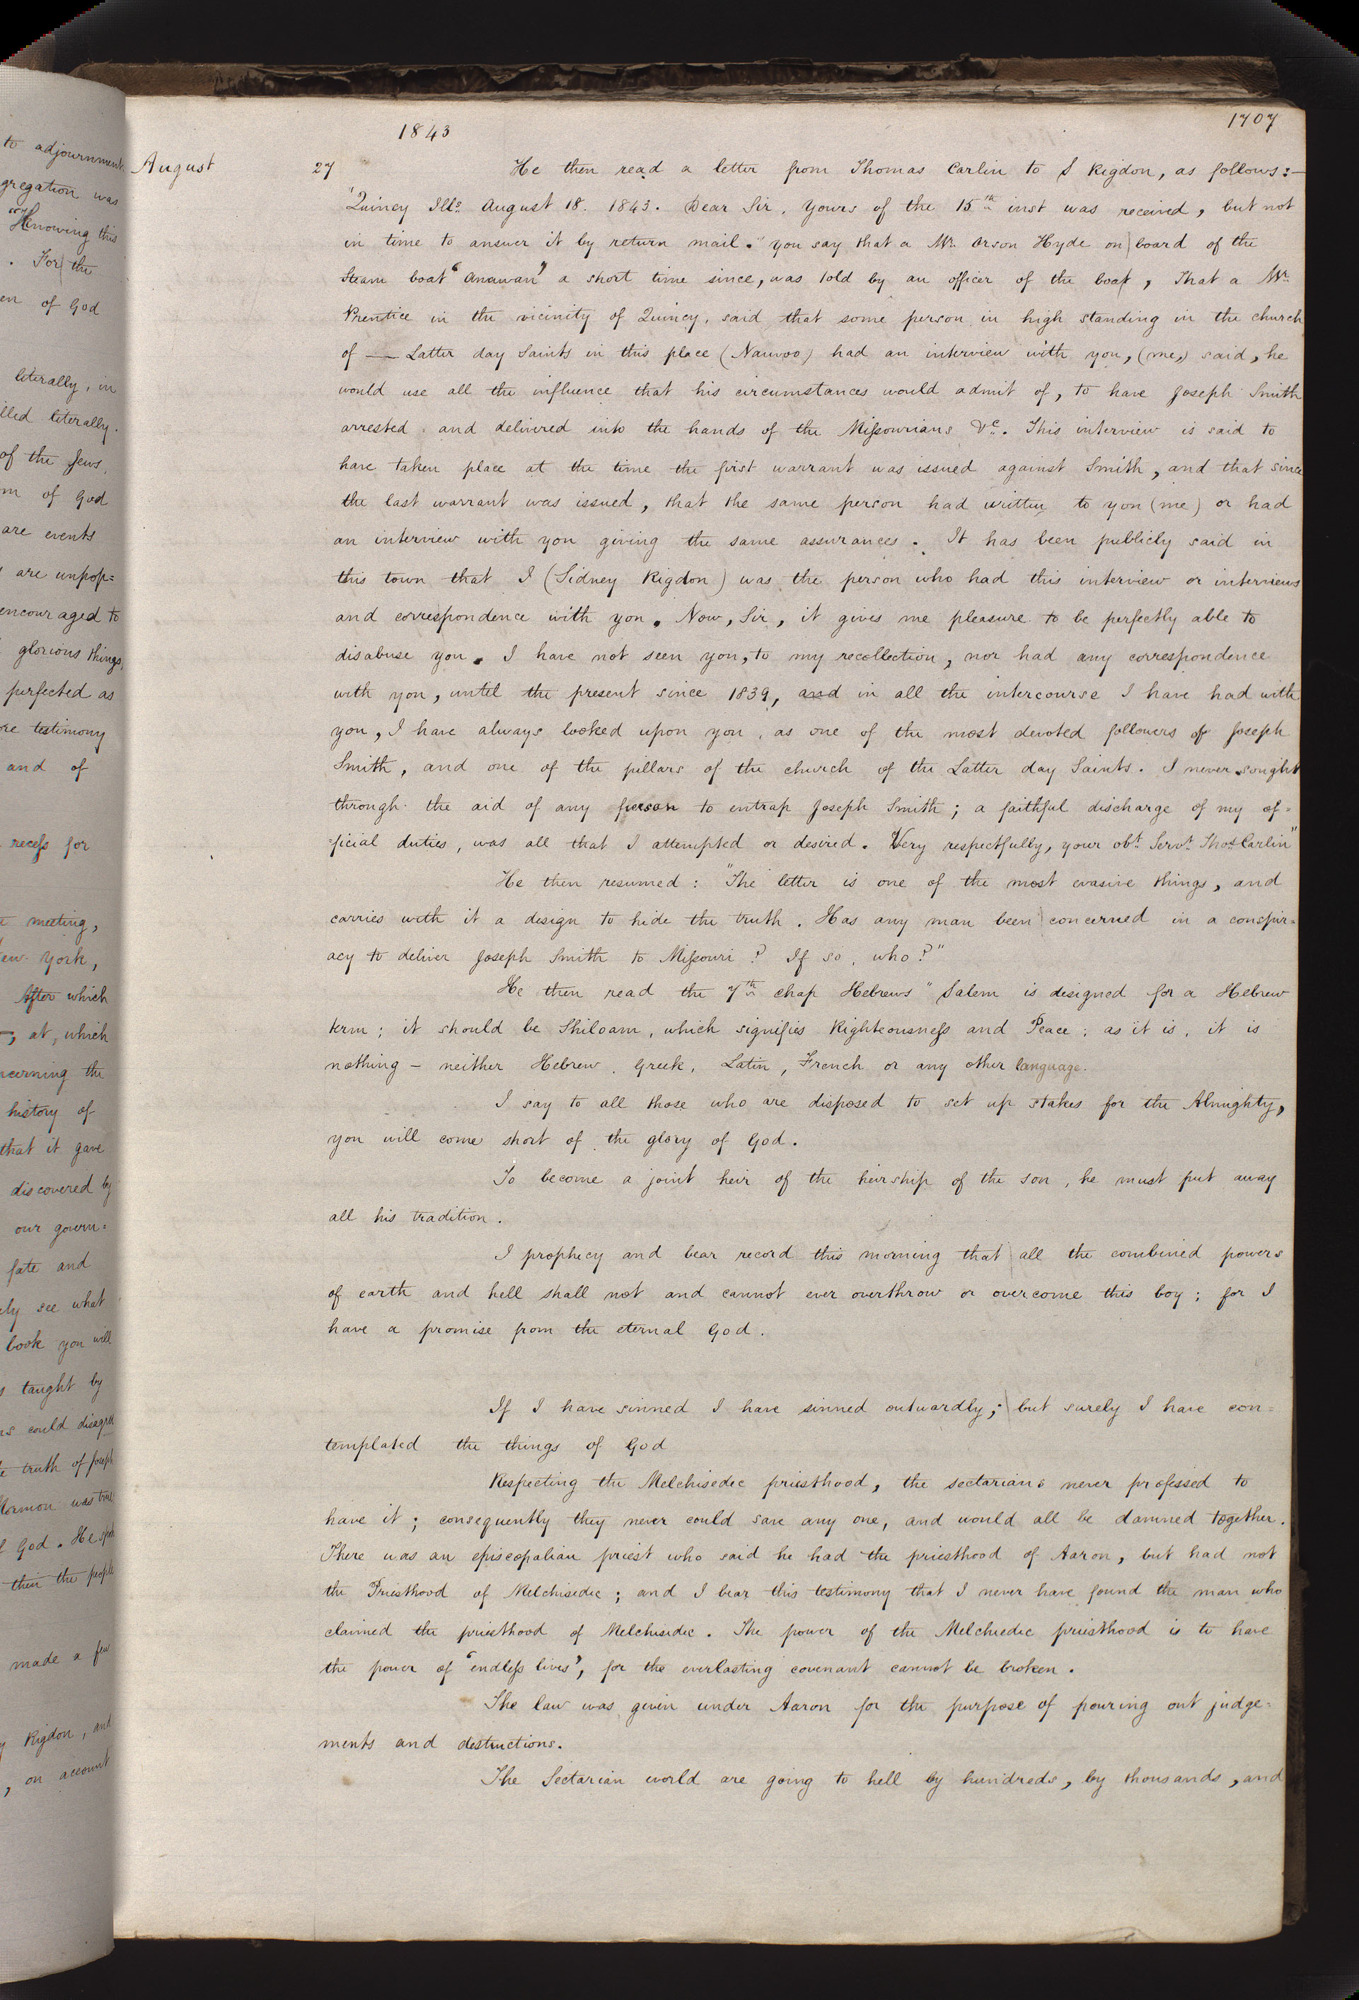 to adjournment
gregation was
Knowing this
. For the
en of God
literally, in
illed literally.
of the Jews,
m of God
are events
are unpop=
encouraged to
glorious things,
perfected as
ore testimony
and of
recess for
meeting,
ew York,
After which
, at, which
ncerning the
history of
that it gave
discovered by
our govern=
fate and
ely see what
book you will
s taught by
ns could disagree
e truth of Joseph
Mormon was true
f God. He spoke
then the people
made a few
y Rigdon, and
, on account
1843
1707
August 27 He then read a letter from Thomas Carlin to S Rigdon, as follows:—
"Quincy Ills. August 18. 1843. Dear Sir. Yours of the 15th inst was received, but not
in time to answer it by return mail. "you say that a Mr. Orson Hyde on board of the
Steam boat "Anawan" a short time since, was told by an officer of the boat, That a Mr.
Prentice in the vicinity of Quincy, said that some person in high standing in the church
of — Latter day Saints in this place (Nauvoo) had an interview with you, (me,) said, he
would use all the influence that his circumstances would admit of, to have Joseph Smith
arrested and delivered into the hands of the Missourians &c. This interview is said to
have taken place at the time the first warrant was issued against Smith, and that since
the last warrant was issued, that the same person had written to you (me) or had
an interview with you giving the same assurances. It has been publicly said in
this town that I (Sidney Rigdon) was the person who had this interview or interviews
and correspondence with you. Now, Sir, it gives me pleasure to be perfectly able to
disabuse you. I have not seen you, to my recollection, nor had any correspondence
with you, until the present since 1839, and in all the intercourse I have had with
you, I have always looked upon you, as one of the most devoted followers of Joseph
Smith, and one of the pillars of the church of the Latter day Saints. I never sought
through the aid of any person to entrap Joseph Smith; a faithful discharge of my of=
=ficial duties, was all that I attempted or desired. Very respectfully, your obt. Servt. Thos. Carlin"
He then resumed: "The letter is one of the most evasive things, and
carries with it a design to hide the truth. Has any man been concerned in a conspir=
acy to deliver Joseph Smith to Missouri? If so, who?"
He then read the 7th chap Hebrews "Salem is designed for a Hebrew
term; it should be Shiloam, which signifies Righteousness and Peace; as it is, it is
nothing — neither Hebrew, Greek, Latin, French or any other language.
I say to all those who are disposed to set up stakes for the Almighty,
you will come short of the glory of God.
To become a joint heir of the heirship of the son, he must put away
all his tradition.
I prophecy and bear record this morning that all the combined powers
of earth and hell shall not and cannot ever overthrow or overcome this boy; for I
have a promise from the eternal God.
If I have sinned I have sinned outwardly; but surely I have con=
templated the things of God
Respecting the Melchisedec priesthood, the sectarians never professed to
have it; consequently they never could save any one, and would all be damned together.
There was an episcopalian priest who said he had the priesthood of Aaron, but had not
the Priesthood of Melchisedec; and I bear this testimony that I never have found the man who
claimed the priesthood of Melchisedec. The power of the Melchiedec priesthood is to have
the power of "endless lives", for the everlasting covenant cannot be broken.
The law was given under Aaron for the purpose of pouring out judge=
ments and destructions.
The Sectarian world are going to hell by hundreds, by thousands, and